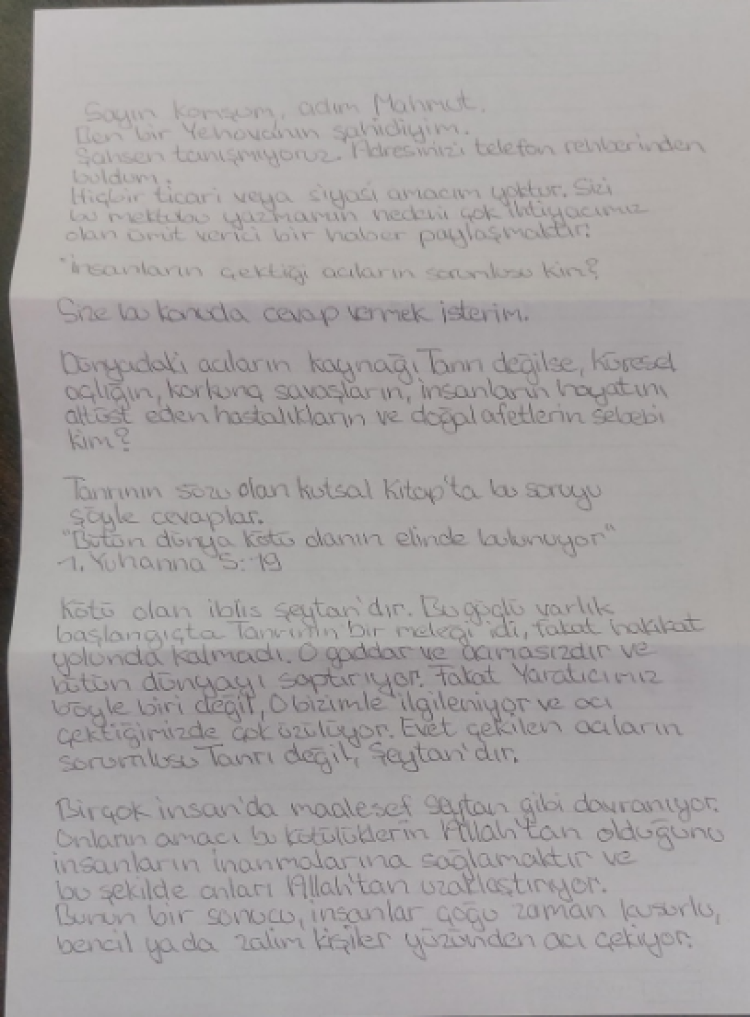 Sayın komşum, adım Mahmut.
Ben bir Yehovanın şahidiyim.
Şahsen tanışmıyoruz. Adresinizi telefon rehberinden
buldum.
Hiçbir ticari veya siyasi amacım yoktur. Sizi
bu mektubu yazmamın nedeni çok ihtiyacımız
olan ümit verici bir haber paylaşmaktır:
"İnsanların çektiği acıların sorumlusu kim?
Size bu konuda cevap vermek isterim.
Dünyadaki acıların kaynağı Tanrı değilse, küresel
açlığın, korkunç savaşların, insanların hayatını
altüst eden hastalıkların ve doğal afetlerin sebebi
kim?
Tanrının sözü olan kutsal Kitap'ta bu soruyu
şöyle cevaplar.
"Bütün dünya kötü olanın elinde bulunuyor"
1. Yuhanna 5:19
Kötü olan iblis şeytan'dır. Bu güçlü varlık
başlangıçta Tanrının bir meleği idi, fakat hakikat
yolunda kalmadı. O gaddar ve acımasızdır ve
bütün dünyayı saptırıyor. Fakat Yaratıcımız
böyle biri değil, O bizimle ilgileniyor ve acı
çektiğimizde çok üzülüyor. Evet çekilen acıların
sorumlusu Tanrı değil, Şeytan'dır.
Birçok insan'da maalesef Şeytan gibi davranıyor.
Onların amacı bu kötülüklerin Allah'tan olduğunu
insanların inanmalarına sağlamaktır ve
bu şekilde onları Allah'tan uzaklaştırıyor.
Bunun bir sonucu, insanlar çoğu zaman kusurlu,
bencil yada zalim kişiler yüzünden acı çekiyor.